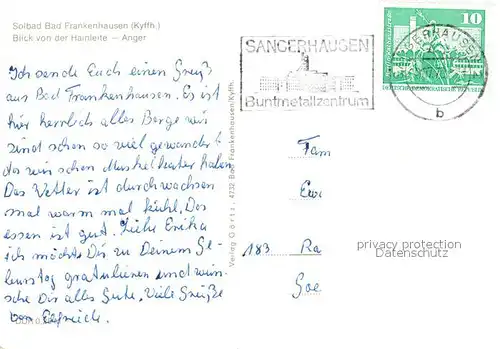 Solbad Bad Frankenhausen (Kyffh.)
Blick von der Hainleite — Anger
Ich sende Euch einen Gruß
aus Bad Frankenhausen. Es ist
hier herrlich alles Berge wir
sind schon so viel gewandert
das wir schon Muskelkater haben
Das Wetter ist durchwachsen
mal warm mal kühl. Das
essen ist gut. Liebe Erika
ich möchte Dir zu Deinem Ge-
burtstag gratulieren und wün-
sche Dir alles Gute. Viele Grüße
von Elfriede.
Verlag Görtz, 4732 Bad Frankenhausen/Kyffh.
SANGERHAUSEN
Buntmetallzentrum
10
DEUTSCHE DEMOKRATISCHE REPUBLIK
b
Fam
Ew
183 Ra
Goe
privacy protection
Datenschutz